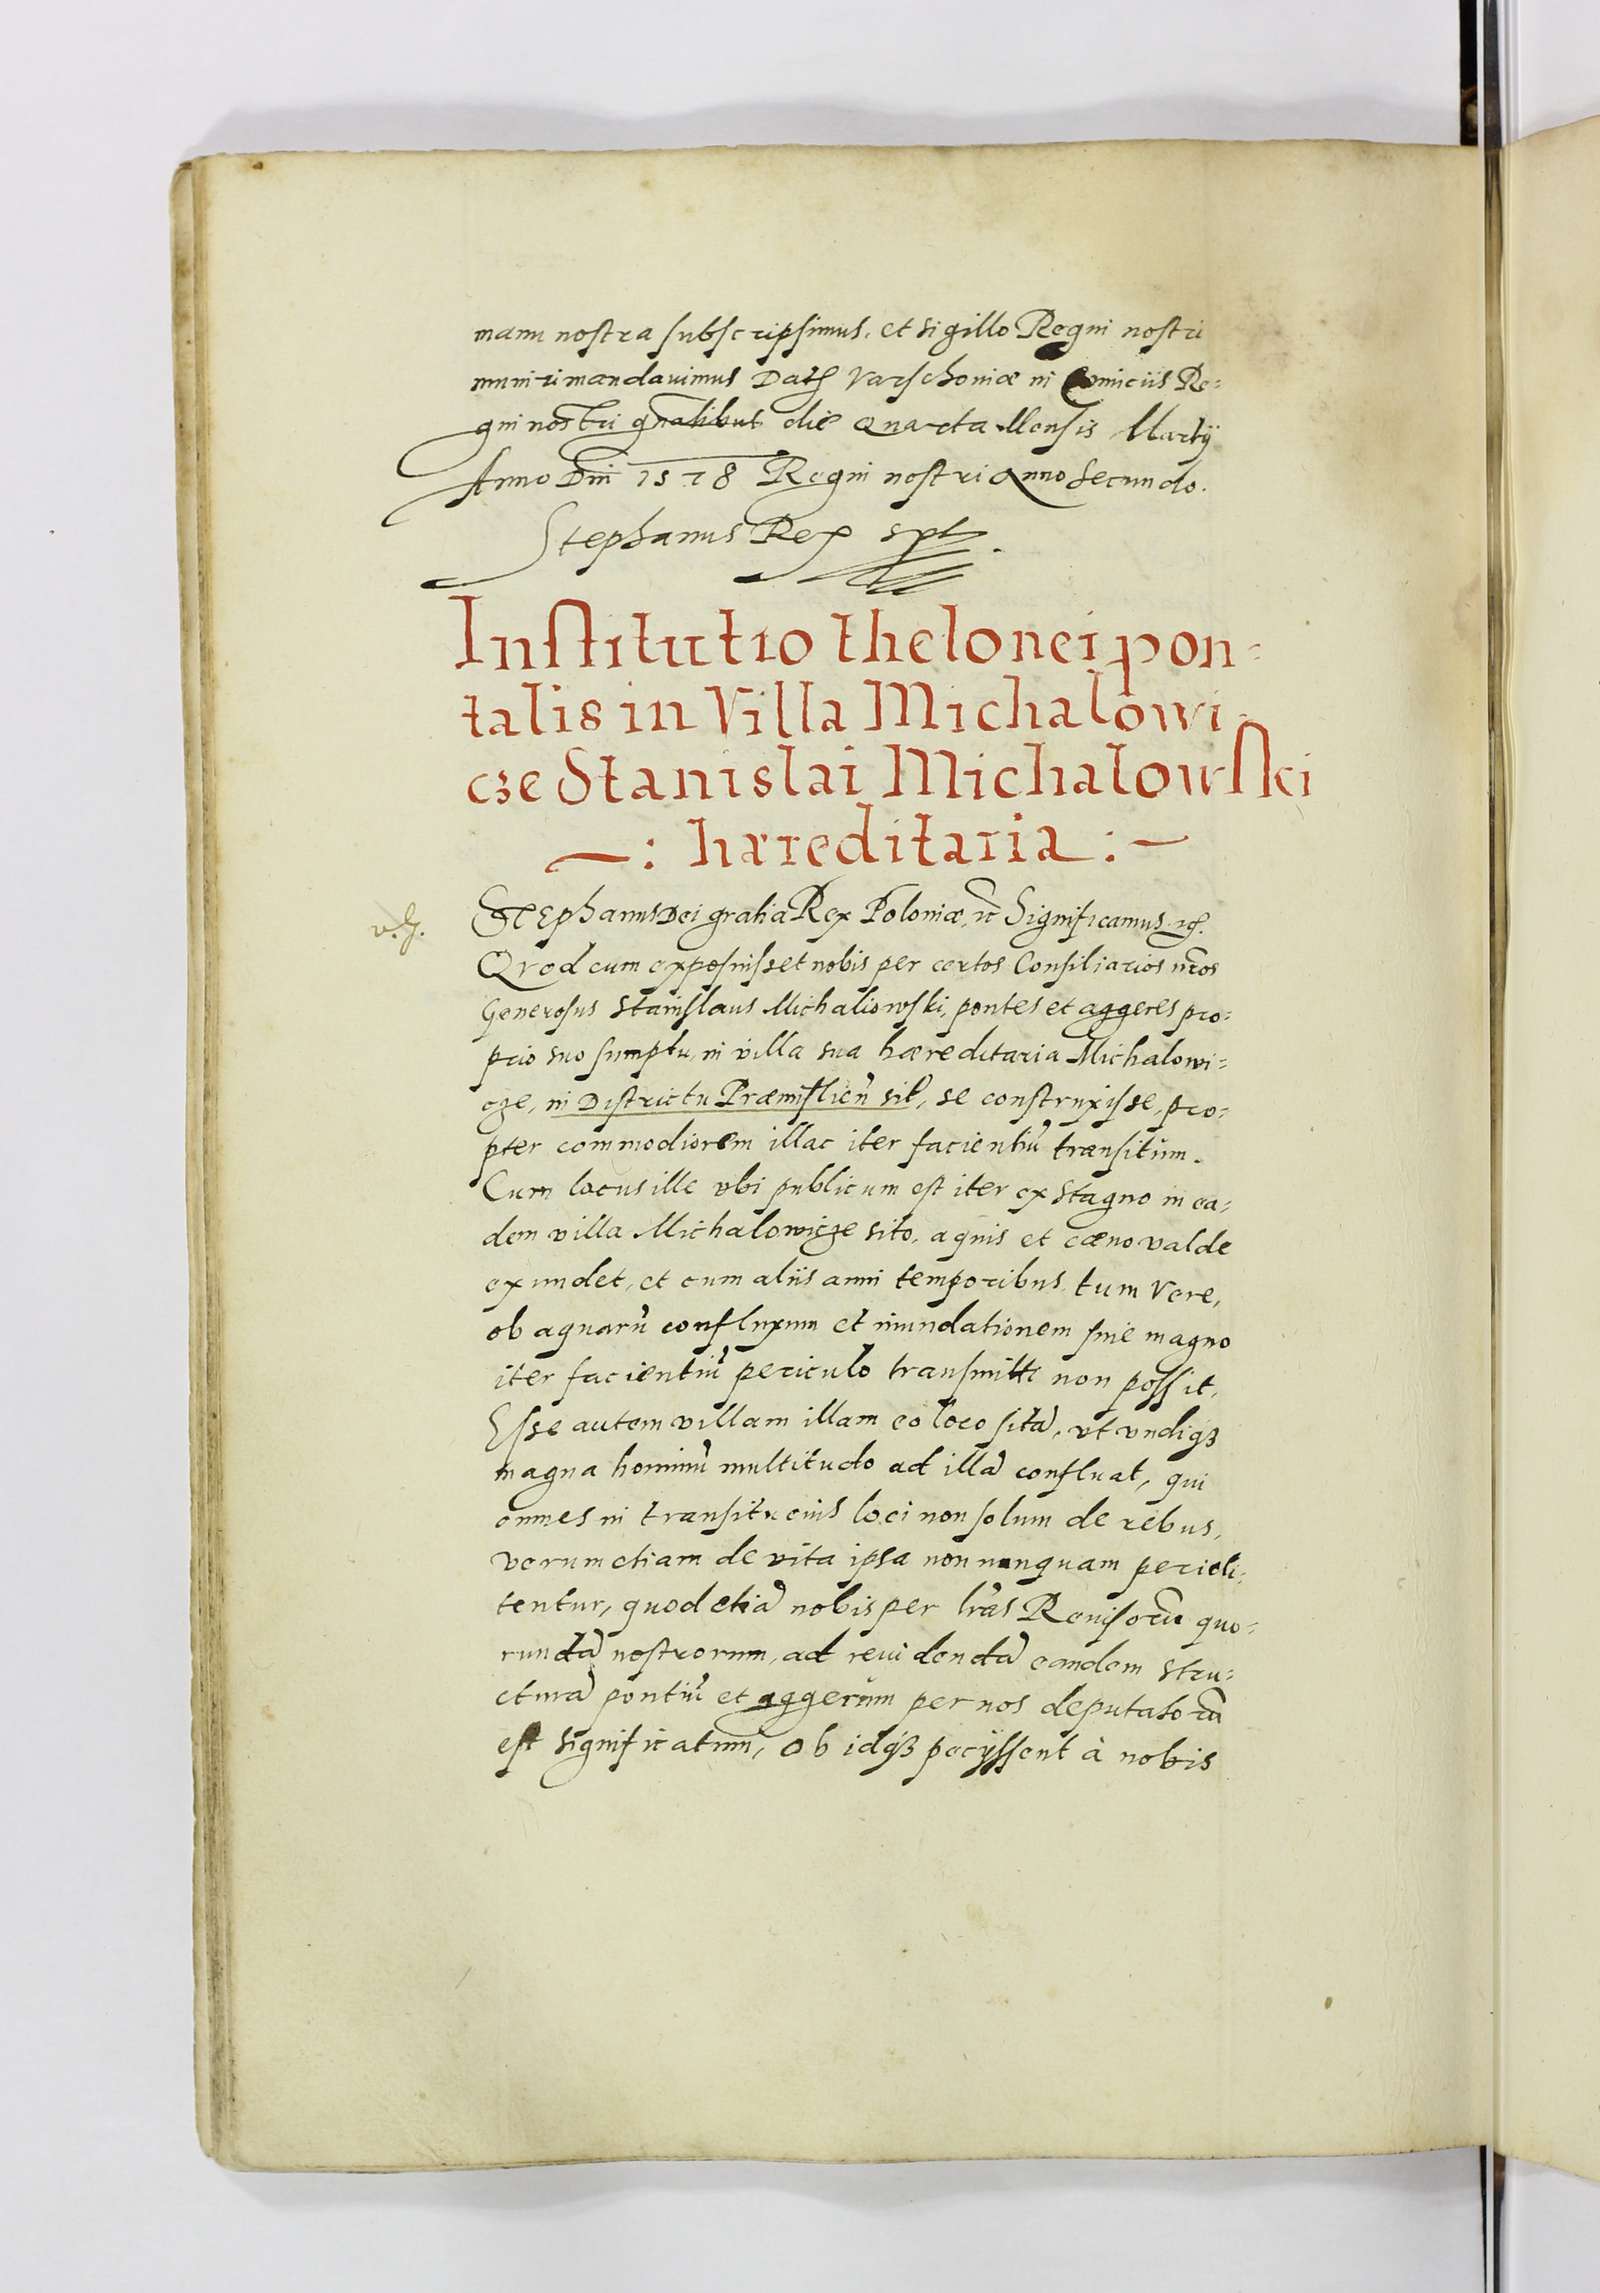 manu nostra subscripsimus, et sigillo Regni nostri
muniri mandavimus Dat Varschoviæ in Comiciis Re-
gni nostri gnalibus die Quarta Mensis Martij
Anno Dni 1578 Regni nostri Anno Secundo.
Stephanus Rex spt
Institutio thelonei pon-
talis in Villa Michalowi-
cze Stanislai Michalowski
—: hæreditaria :—
Stephanus Dei gratia Rex Poloniæ, etc Significamus, etc.
Quod cum exposuisset nobis per certos Consiliarios nr̃os
Generosus Stanislaus Michaliowski, pontes et aggeres pro-
prio suo sumptu, in villa sua hæreditaria Michalowi-
cze, in Districtu Præmisliem̃ sit, se construxisse, pro-
pter commodiorem illac iter facientiũ transitum.
Cum locus ille vbi publicum est iter ex stagno in ea-
dem villa Michalowicze sito, aquis et cæno valde
exundet, et cum aliis anni temporibus tum Vere,
ob aquarũ confluxum et inundationem sine magno
iter facientiũ periculo transmitti non possit,
Esse autem villam illam eo loco sitã, vt vndiqȝ
magna hominũ multitudo ad illã confluat, qui
omnes in transitu eius loci non solum de rebus,
verum etiam de vita ipsa non nunquam pericli-
tentur, quod etiã nobis per lr̃as Reuisorũ quo-
rundã nostrorum, ad reuidendã eandem stru-
cturã pontiũ et aggerum per nos deputatorũ
est significatum, Ob idqȝ petijssent à nobis